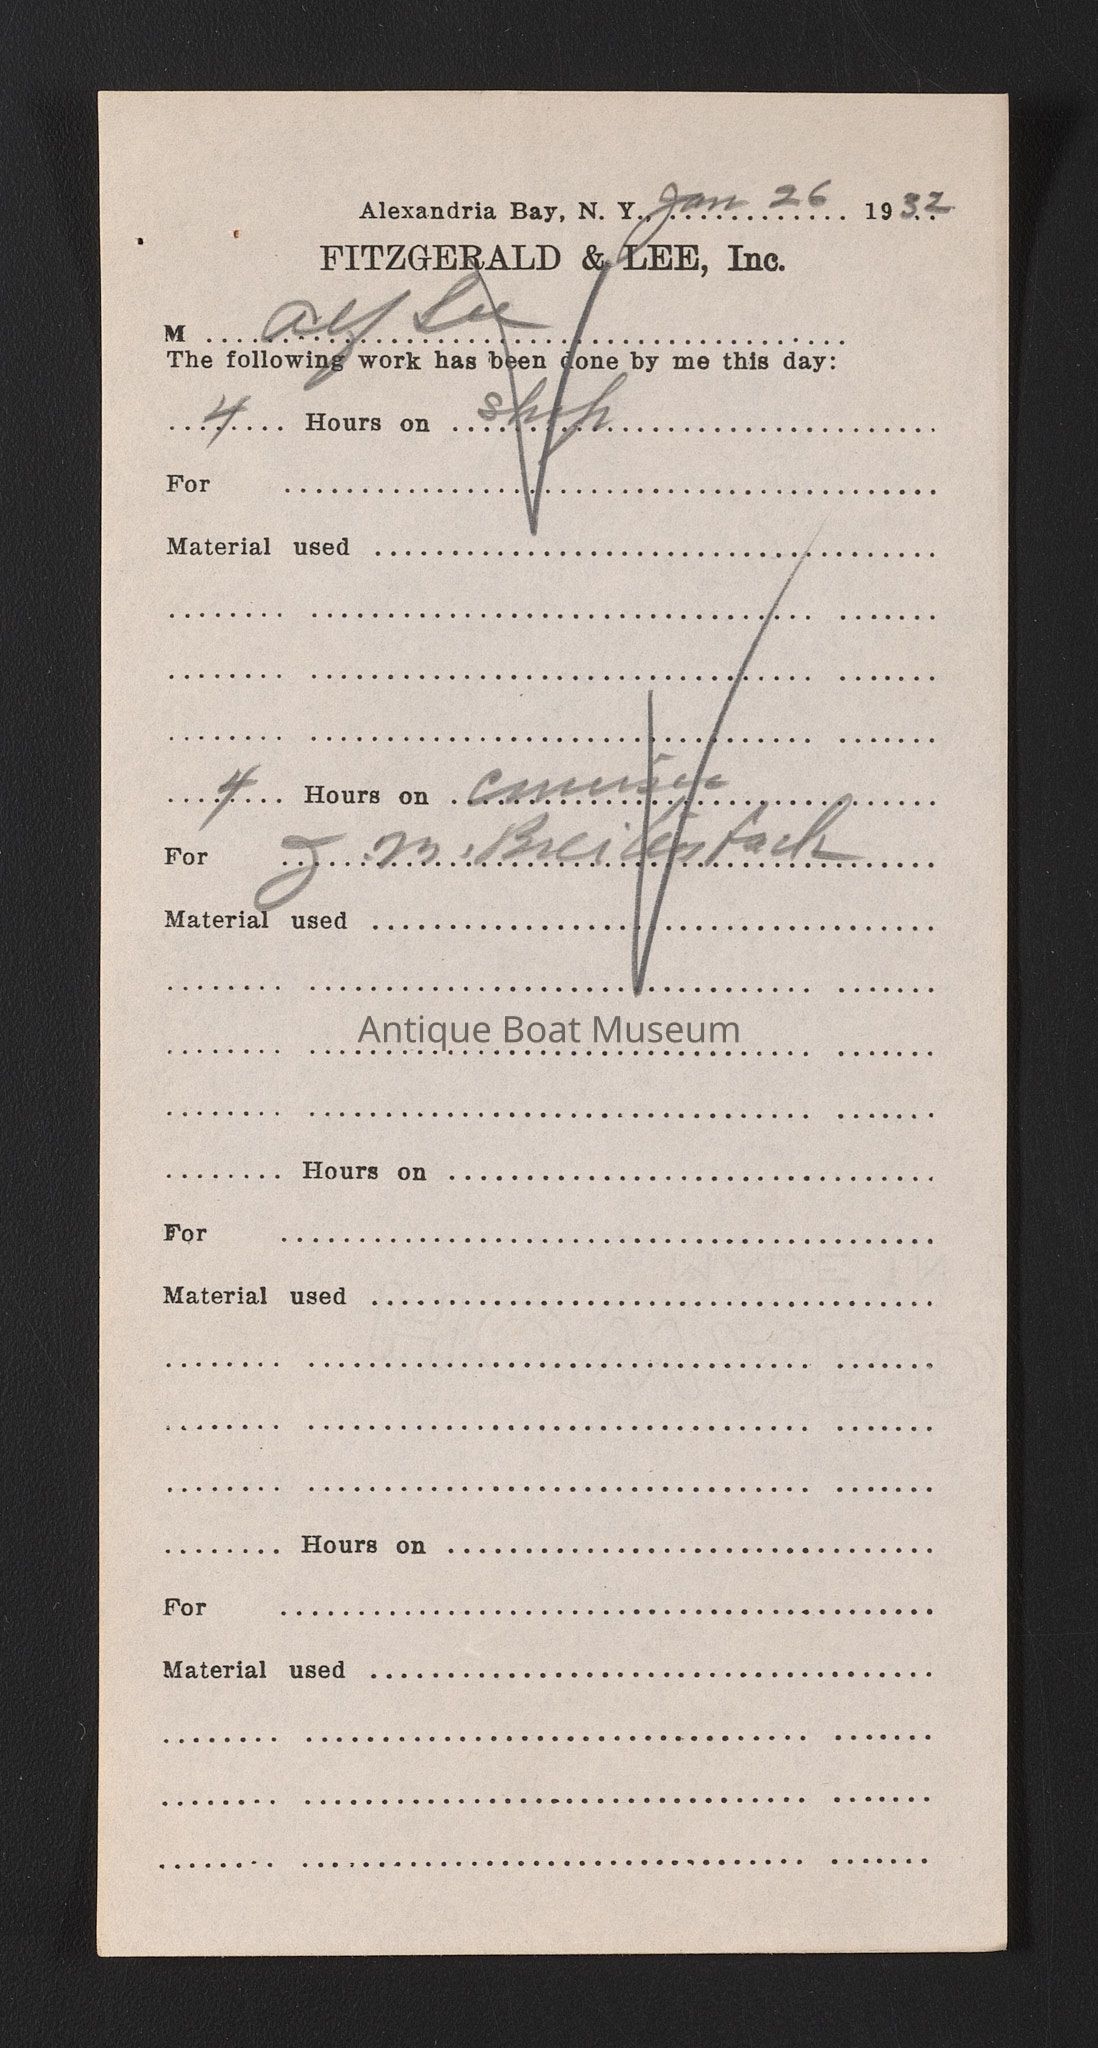 Alexandria Bay, N. Y. Jan 26 1932
FITZGERALD & LEE, Inc.
M Alf Lee
The following work has been done by me this day:
4 Hours on shop
For
Material used
4 Hours on
For J. M. Breitenstack
Material used
Antique Boat Museum
Hours on
For
Material used
Hours on
For
Material used